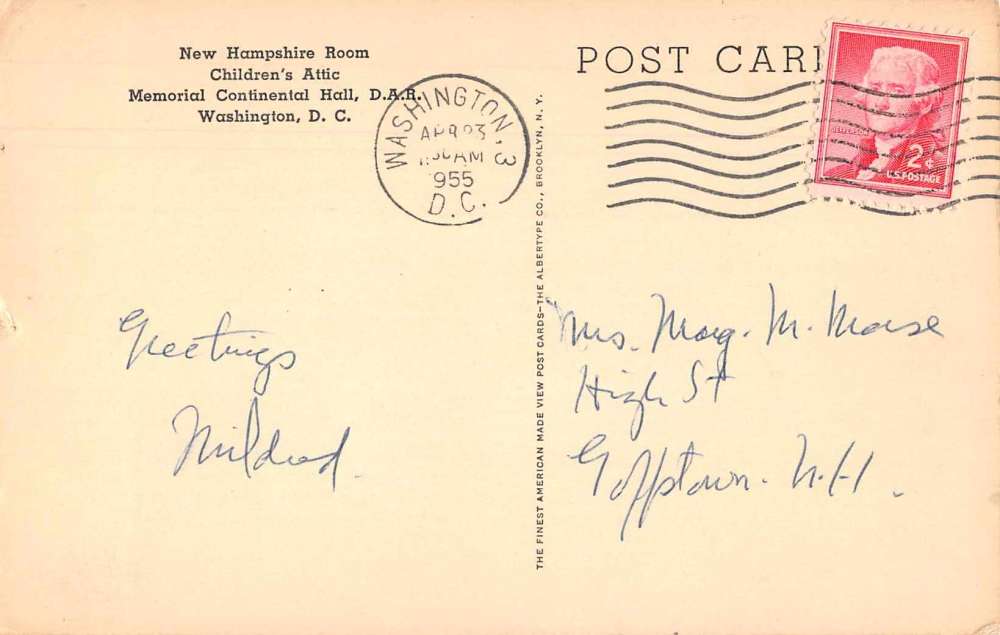 New Hampshire Room
Children's Attic
Memorial Continental Hall, D.A.R.
Washington, D. C.
POST CARD
WASHINGTON, 3
APR 23
AM
1955
D.C.
JEFFERSON
2¢
U.S. POSTAGE
THE FINEST AMERICAN MADE VIEW POST CARDS—THE ALBERTYPE CO., BROOKLYN, N. Y.
Greetings
Mildred.
Mrs. Marg. M. Morse
High St
Goffstown. N.H.